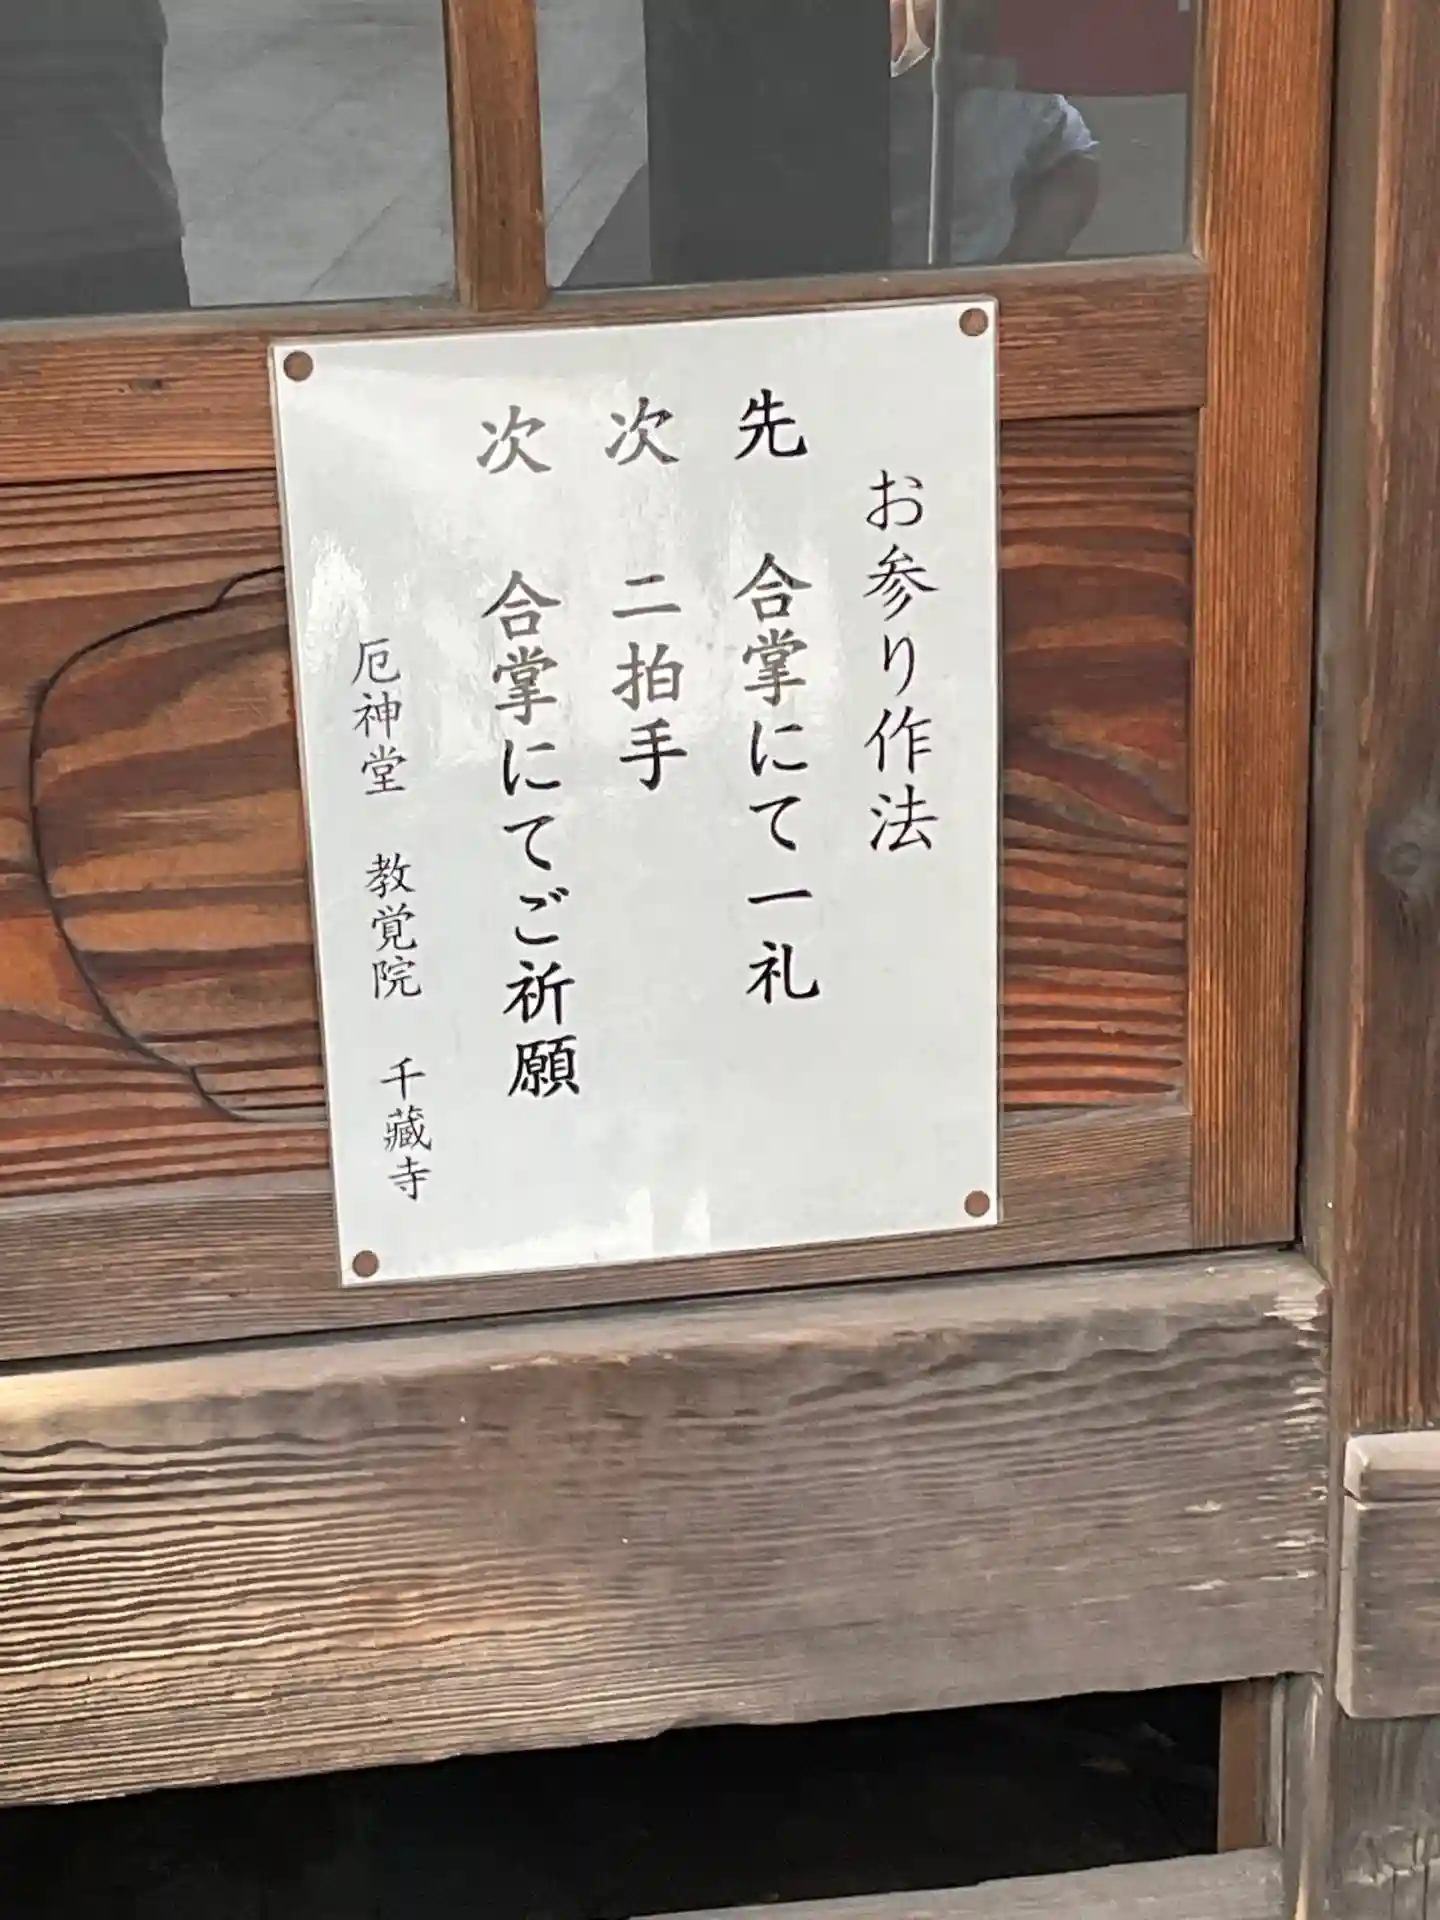 お参り作法
先 合掌にて一礼
次 二拍手
次 合掌にてご祈願
厄神堂 教覚院 千藏寺